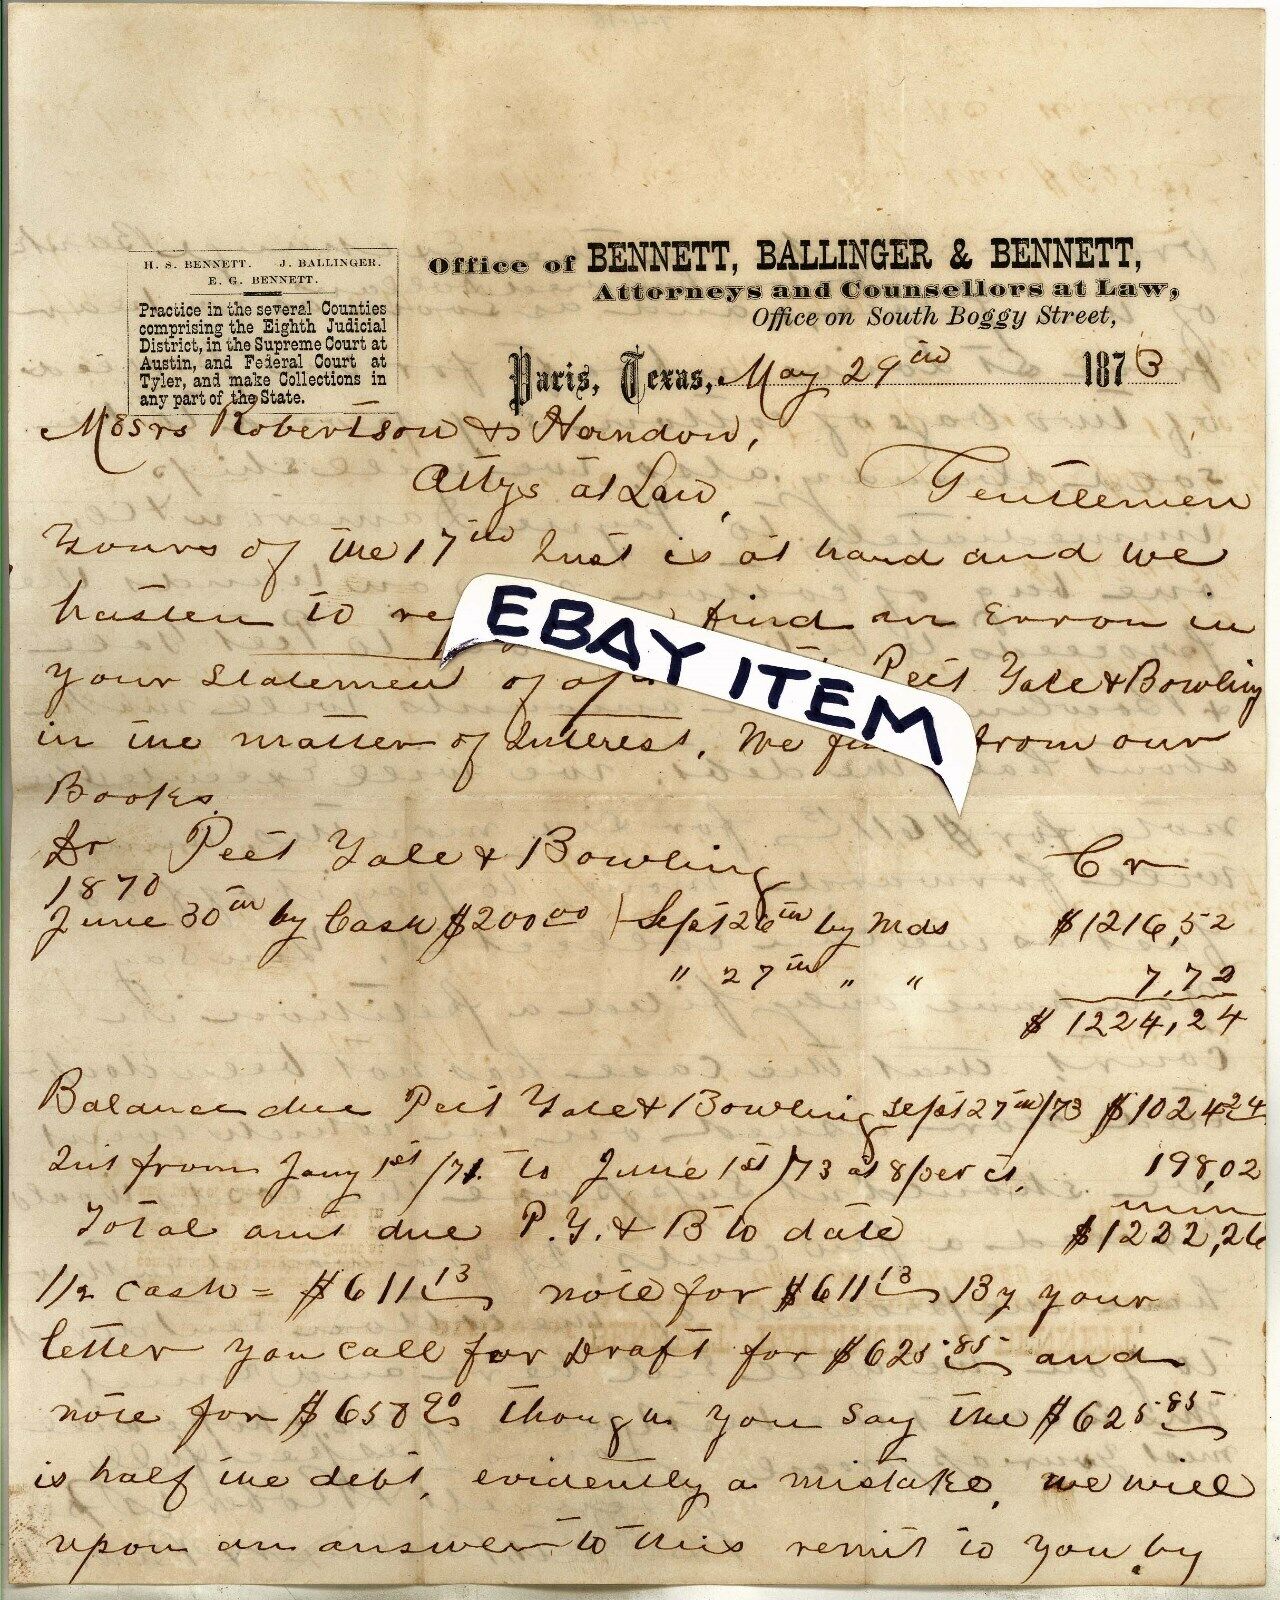 H. S. BENNETT. J. BALLINGER.
E. G. BENNETT.
Practice in the several Counties
comprising the Eighth Judicial
District, in the Supreme Court at
Austin, and Federal Court at
Tyler, and make Collections in
any part of the State.
Office of BENNETT, BALLINGER & BENNETT,
Attorneys and Counsellors at Law,
Office on South Boggy Street,
Paris, Texas, May 29th 1873
Messrs Robertson & Herndon,
Attys at Law, Gentlemen
Yours of the 17th Inst is at hand and we
hasten to find an Error in
your Statement of Peet Yale & Bowling
in the matter of Interest. We from our
Books.
Dr Peet Yale & Bowling Cr
1870
June 30th by Cash $200.00 Sept 26th by Mds $1216,52
" 27th " " 7,72
$1224,24
Balance due Peet Yale & Bowling Sept 27th/73 $1024 24
Int from Jany 1st/71. to June 1st/73 at 8 per ct. 198,02
Total amt due P. Y. & B to date $1222,26
1/2 cash = $611 13 note for $611 13 By your
letter you call for Draft for $625.85 and
note for $658 90 though you say the $625.85
is half the debt, evidently a mistake, we will
upon an answer to this remit to you by
EBAY ITEM